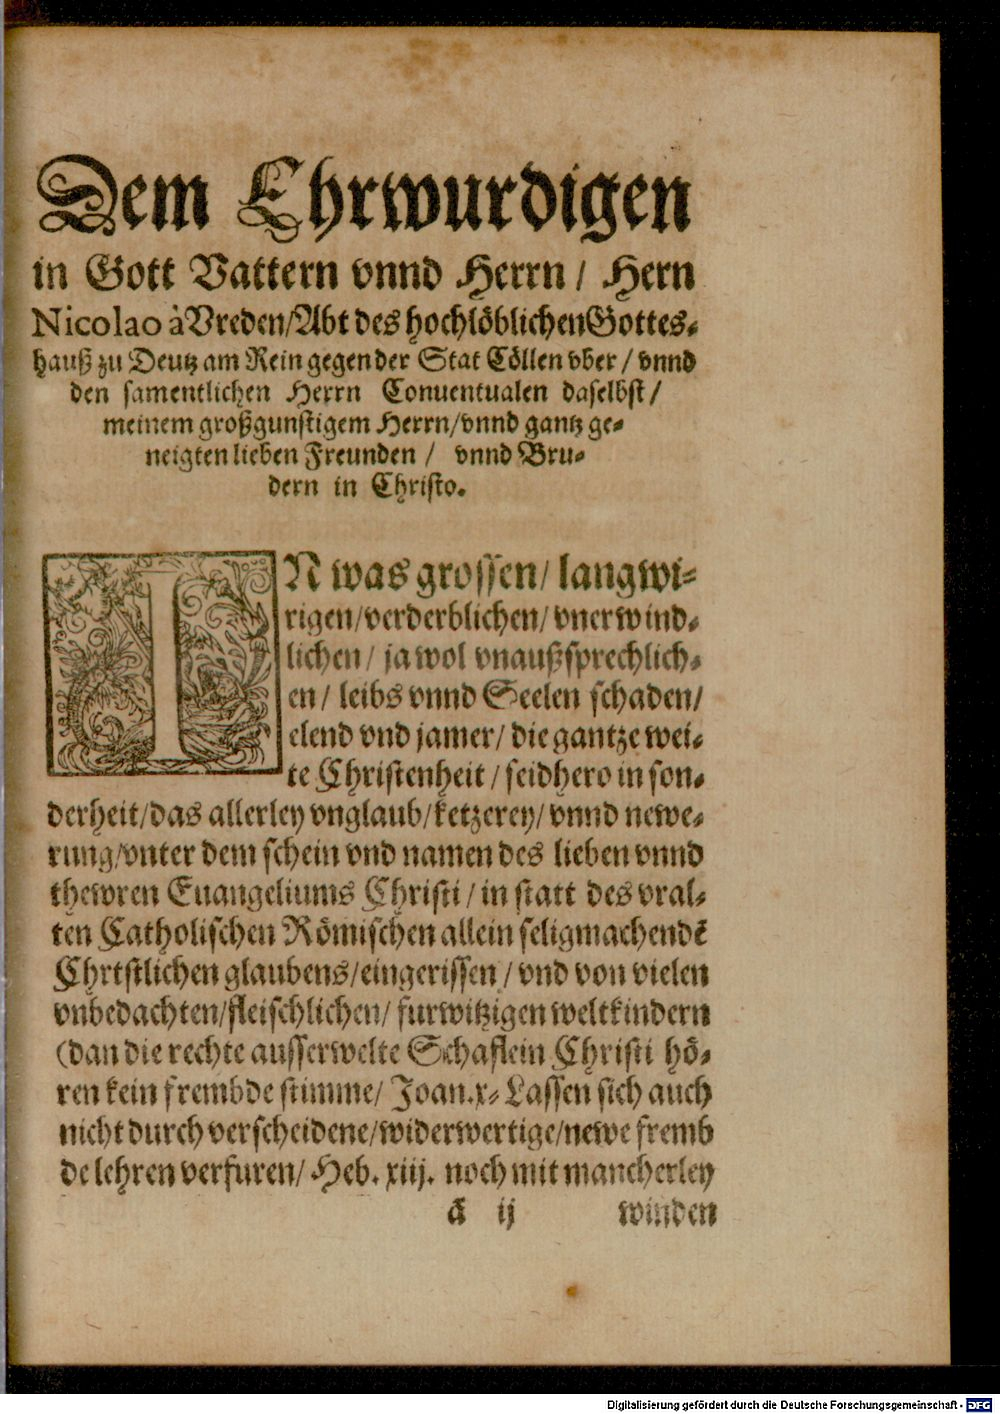 Dem Ehrwurdigen
in Gott Vattern vnnd Herrn / Hern
Nicolao à Vreden/Abt des hochlöblichen Gottes⸗
hauß zu Deutz am Rein gegen der Stat Cöllen vber / vnnd
den samentlichen Herrn Conuentualen daselbst /
meinem großgunstigem Herrn/vnnd gantz ge⸗
neigten lieben Freunden / vnnd Bru⸗
dern in Christo.
IN was grossen/ langwi⸗
rigen/verderblichen/ vnerwind⸗
lichen/ ja wol vnaußsprechlich⸗
en / leibs vnnd Seelen schaden/
elend vnd jamer/ die gantze wei⸗
te Christenheit / seidhero in son⸗
derheit/das allerley vnglaub/ketzerey/ vnnd newe⸗
rung/vnter dem schein vnd namen des lieben vnnd
thewren Euangeliums Christi / in statt des vral⸗
ten Catholischen Römischen allein seligmachendē
Chrtstlichen glaubens/eingerissen / vnd von vielen
vnbedachten/fleischlichen/ furwitzigen weltkindern
(dan die rechte ausserwelte Schaflein Christi hö⸗
ren kein frembde stimme/ Joan.x⸗ Lassen sich auch
nicht durch verscheidene/widerwertige/newe fremb
de lehren verfuren/ Heb. xiij. noch mit mancherley
ā ij winden
Digitalisierung gefördert durch die Deutsche Forschungsgemeinschaft - DFG